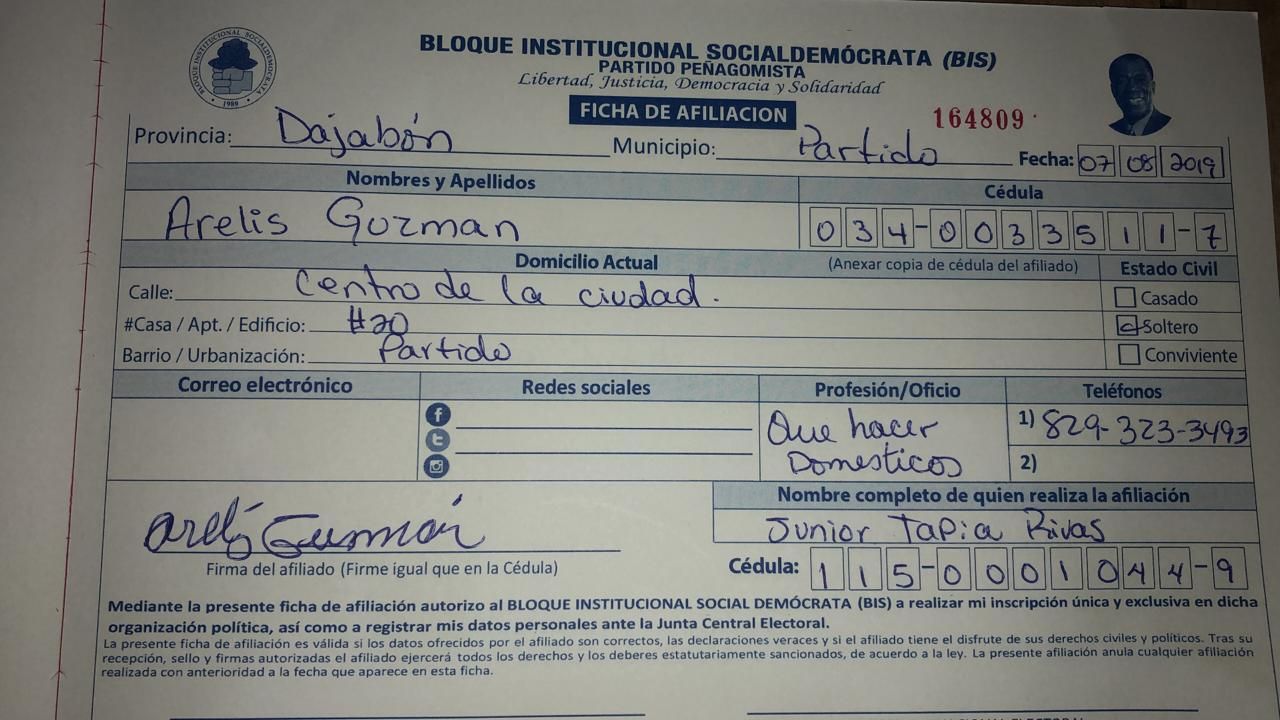 BLOQUE INSTITUCIONAL SOCIALDEMOCRATA
1989
BLOQUE INSTITUCIONAL SOCIALDEMÓCRATA (BIS)
PARTIDO PEÑAGOMISTA
Libertad, Justicia, Democracia y Solidaridad
FICHA DE AFILIACION
164809
Provincia: Dajabón Municipio: Partido Fecha: 07 08 2019
Nombres y Apellidos Cédula
Arelis Guzman 034-0033511-7
Domicilio Actual (Anexar copia de cédula del afiliado) Estado Civil
Calle: Centro de la ciudad. Casado
#Casa / Apt. / Edificio: #20 Soltero
Barrio / Urbanización: Partido Conviviente
Correo electrónico Redes sociales Profesión/Oficio Teléfonos
Que hacer 1) 829-323-3493
Domesticos 2)
Nombre completo de quien realiza la afiliación
Arelis Guzmán Junior Tapia Rivas
Firma del afiliado (Firme igual que en la Cédula) Cédula: 115-0001044-9
Mediante la presente ficha de afiliación autorizo al BLOQUE INSTITUCIONAL SOCIAL DEMÓCRATA (BIS) a realizar mi inscripción única y exclusiva en dicha
organización política, así como a registrar mis datos personales ante la Junta Central Electoral.
La presente ficha de afiliación es válida si los datos ofrecidos por el afiliado son correctos, las declaraciones veraces y si el afiliado tiene el disfrute de sus derechos civiles y políticos. Tras su
recepción, sello y firmas autorizadas el afiliado ejercerá todos los derechos y los deberes estatutariamente sancionados, de acuerdo a la ley. La presente afiliación anula cualquier afiliación
realizada con anterioridad a la fecha que aparece en esta ficha.